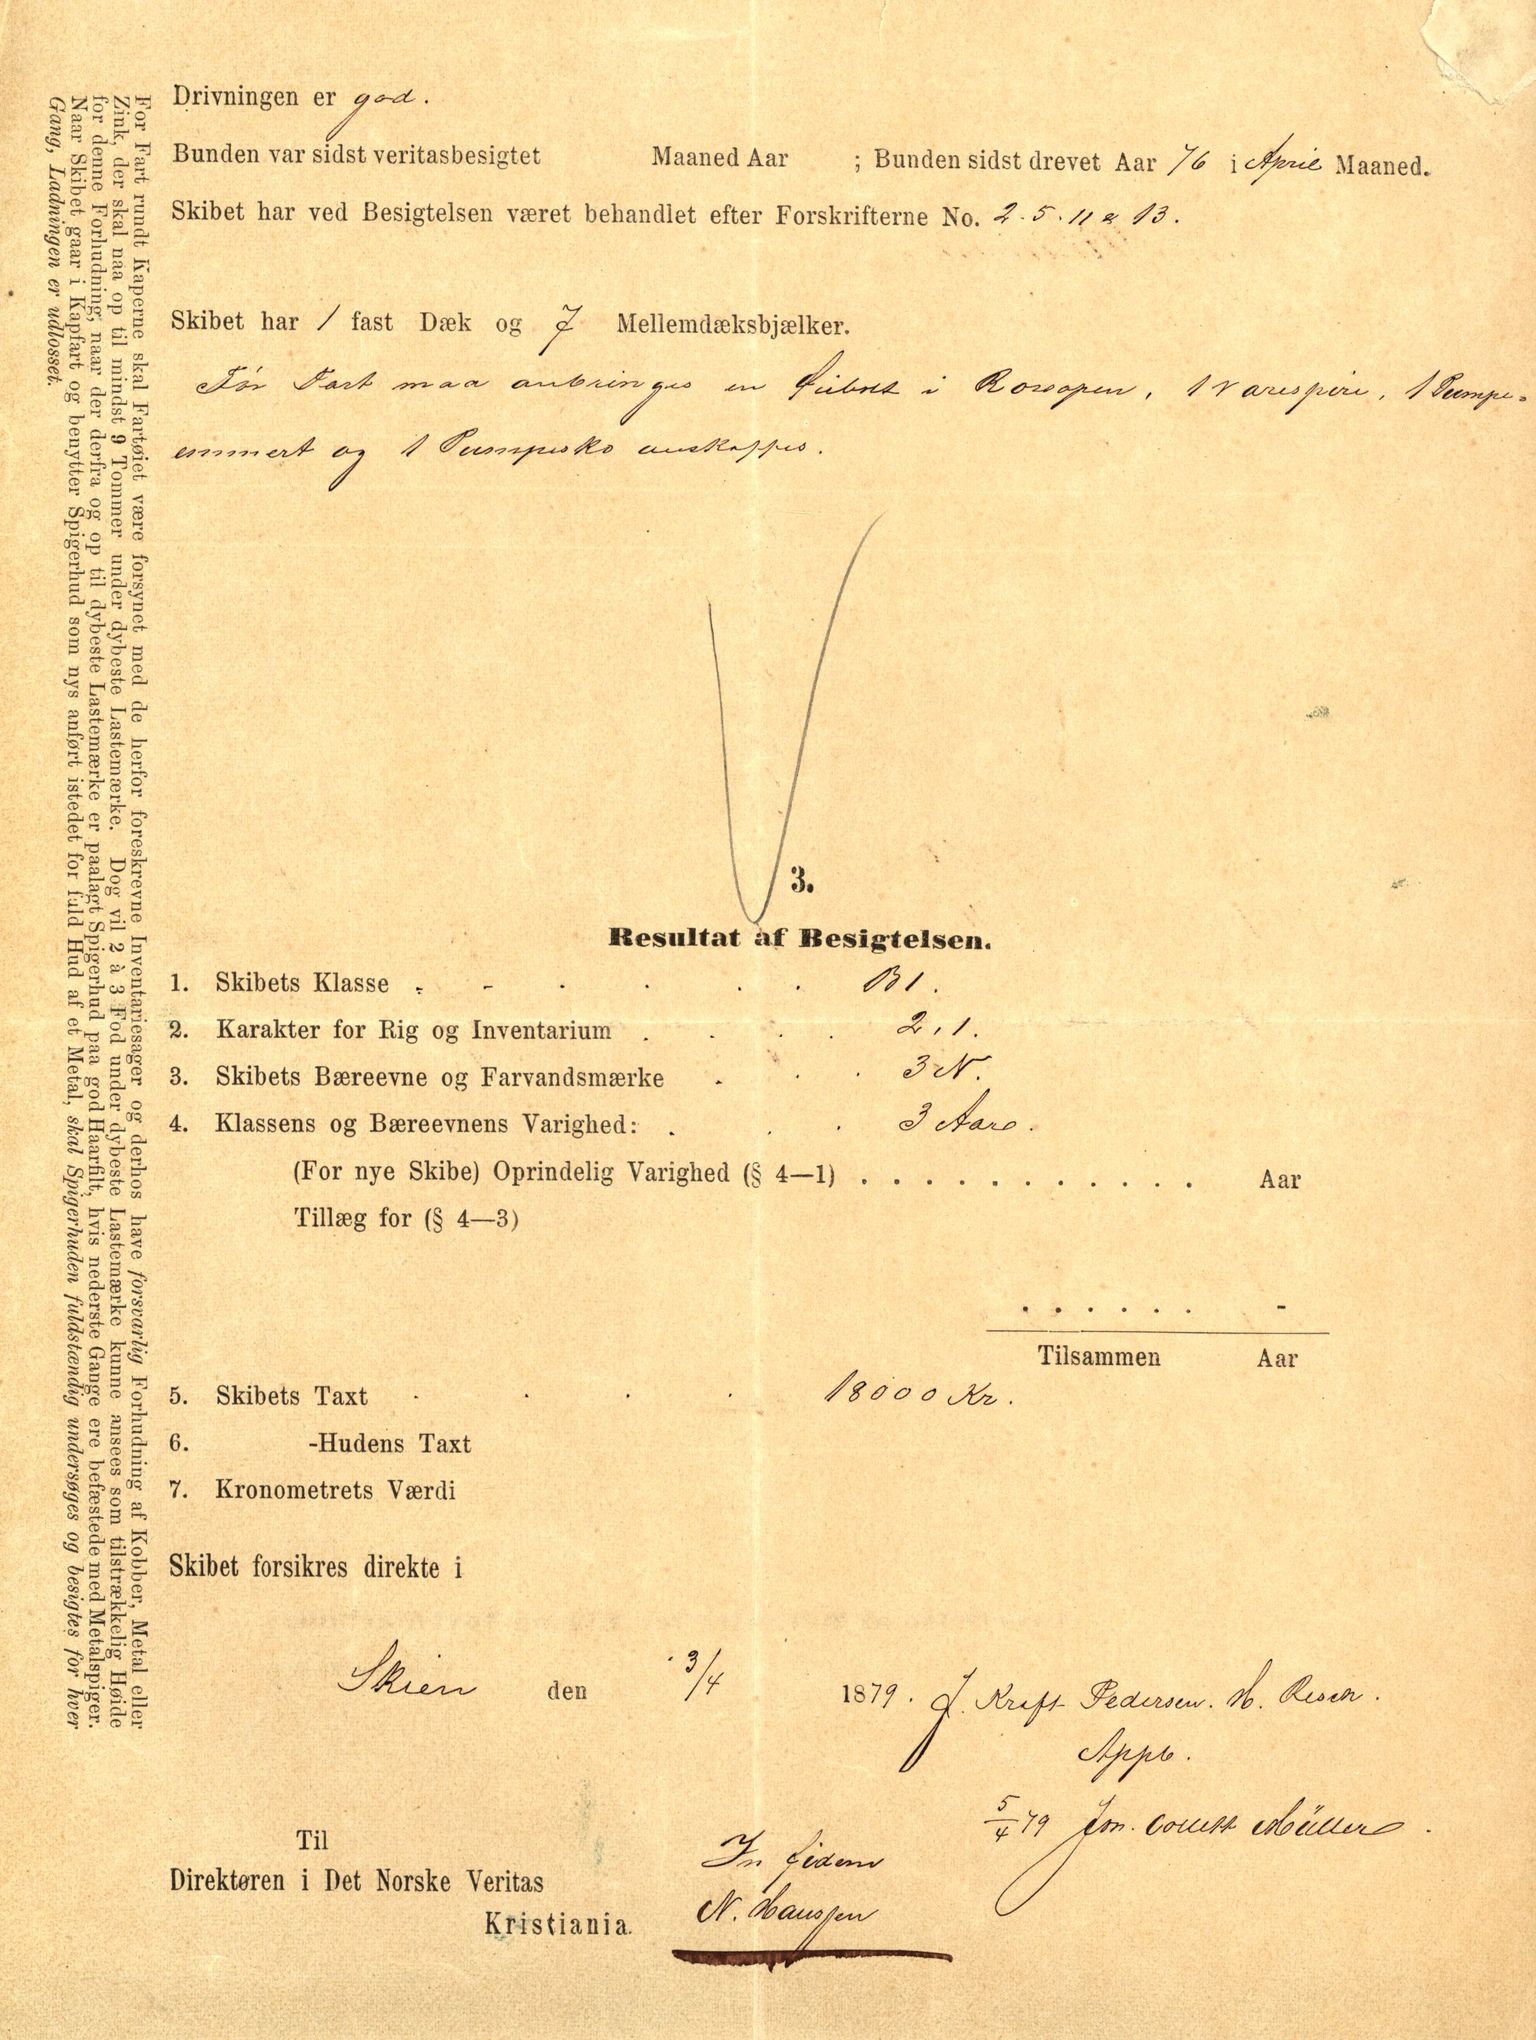 Drivningen er god.
Bunden var sidst veritasbesigtet Maaned Aar ; Bunden sidst drevet Aar 76 i April Maaned.
Skibet har ved Besigtelsen været behandlet efter Forskrifterne No. 2. 5. 11 & 13.
Skibet har 1 fast Dæk og 7 Mellemdæksbjælker.
Før Fart maa anbringes en i 1 Varespire, 1 Pumpe-
emmert og 1 Pumpesko anskaffes.
3.
Resultat af Besigtelsen.
1. Skibets Klasse . - . . . . B 1.
2. Karakter for Rig og Inventarium . . . . 2,1.
3. Skibets Bæreevne og Farvandsmærke . . . 3 N.
4. Klassens og Bæreevnens Varighed: . . . 3 Aar.
(For nye Skibe) Oprindelig Varighed (§ 4—1) . . . . . . . . . . . Aar
Tillæg for (§ 4—3)
. . . . . . -
Tilsammen Aar
5. Skibets Taxt . . . . 18000 Kr.
6. -Hudens Taxt
7. Kronometrets Værdi
Skibet forsikres direkte i
Skien den 3/4 1879. J. Kraft Pedersen. H. Resch.
Appb.
5/4 79 Jon. Collett Müller.
Til
Direktøren i Det Norske Veritas
Kristiania.
In fidem
N. Hanssen
For Fart rundt Kaperne skal Fartøiet være forsynet med de herfor foreskrevne Inventariesager og derhos have forsvarlig Forhudning af Kobber, Metal eller
Zink, der skal naa op til mindst 9 Tommer under dybeste Lastemærke. Dog vil 2 à 3 Fod under dybeste Lastemærke kunne ansees som tilstrækkelig Høide
for denne Forhudning, naar der derfra og op til dybeste Lastemærke er paalagt Spigerhud paa god Haarfilt, hvis nederste Gange ere befæstede med Metalspiger.
Naar Skibet gaar i Kapfart og benytter Spigerhud som nys anført istedet for fuld Hud af et Metal, skal Spigerhuden fuldstændig undersøges og besigtes for hver
Gang, Ladningen er udlosset.